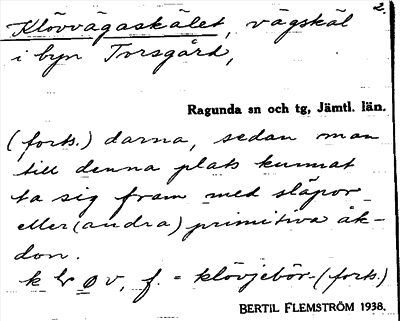 2.
Klövvägaskälet, vägskäl
i byn Torsgård,
Ragunda sn och tg, Jämtl. län.
(forts.) darna, sedan man
till denna plats kunnat
ta sig fram med släpor
eller (andra) primitiva åk-
don.
f. = klövjebör- (forts.)
BERTIL FLEMSTRÖM 1938.